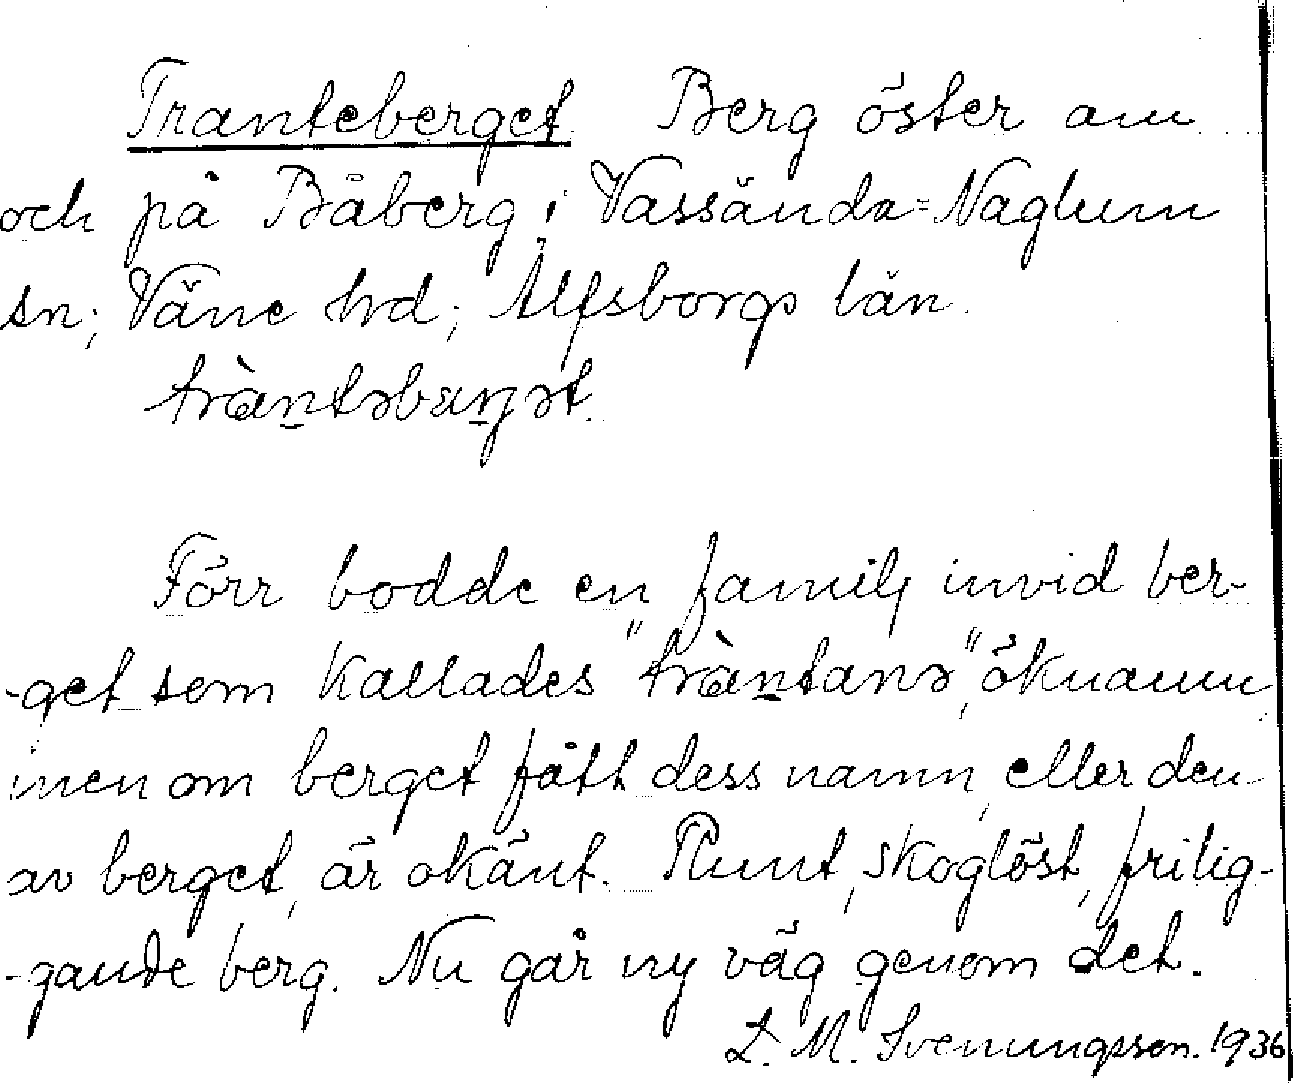 Tranteberget. Berg öster om
och på Båberg i Vassända-Naglum
sn; Väne hd; Älfsborgs län.
Förr bodde en familj invid ber-
-get som kallades "tràntanə", öknamn
men om berget fått dess namn, eller den
av berget, är okänt. Runt, skoglöst, frilig-
-gande berg. Nu går ny väg genom det.
L. M. Svenungsson. 1936